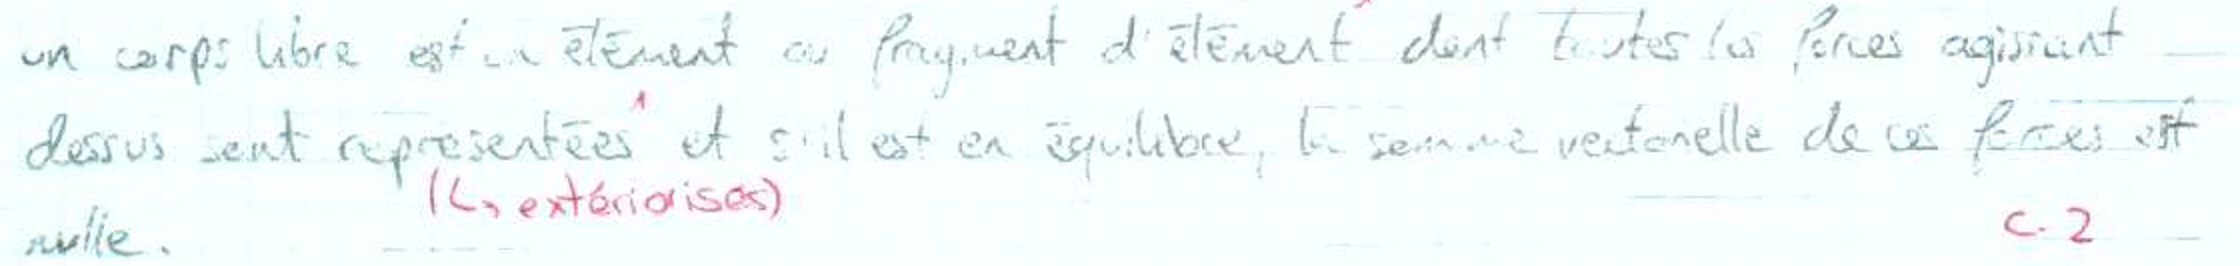 un corps libre est un élément ou fragment d'élément dont toutes les forces agissant
dessus sont représentées et s'il est en équilibre, la somme vectorielle de ces forces est
(↳ extériorisés)
nulle.
C.2